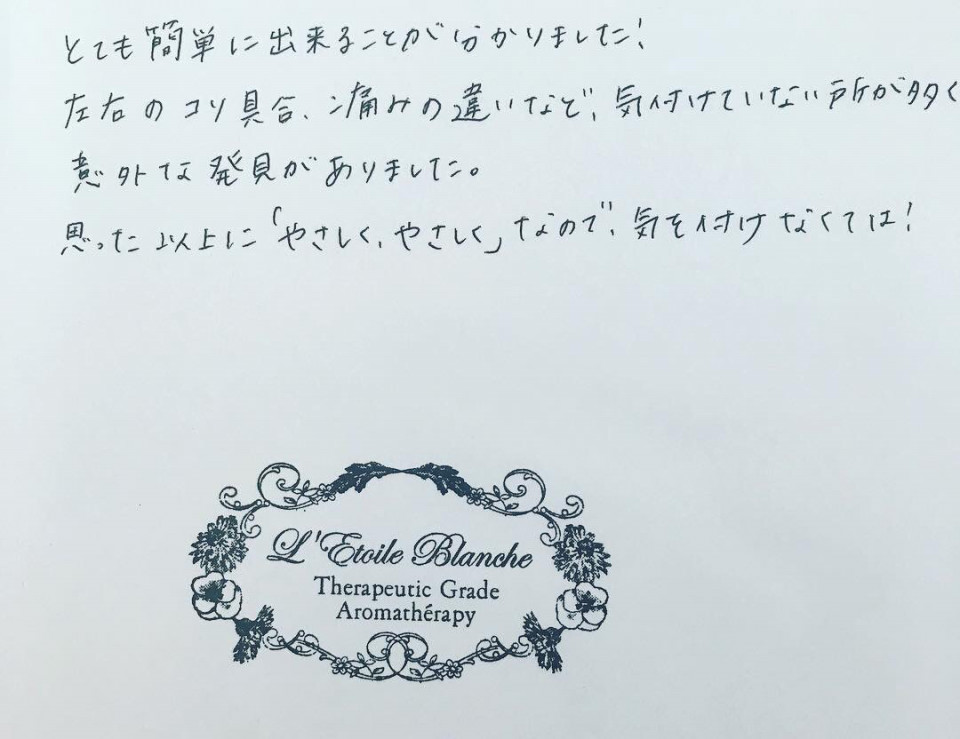 とても簡単に出来ることが分かりました!
左右のコリ具合、痛みの違いなど、気付けていない所が多く
意外な発見がありました。
思った以上に「やさしく、やさしく」なので、気を付けなくては!
L'Etoile Blanche
Therapeutic Grade
Aromathérapy